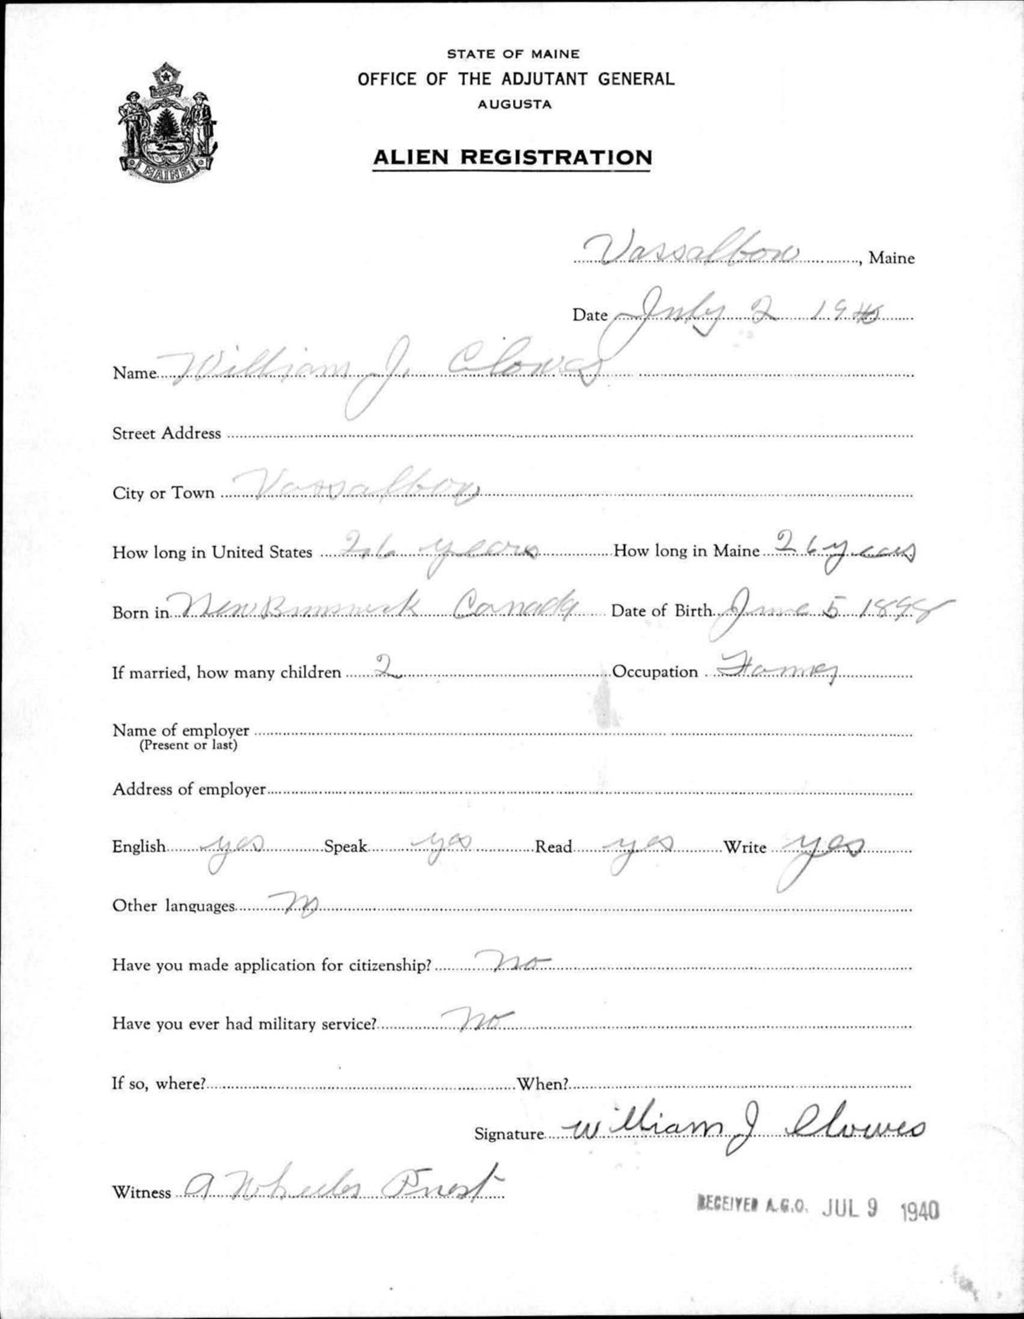 STATE OF MAINE
OFFICE OF THE ADJUTANT GENERAL
AUGUSTA
ALIEN REGISTRATION
MAINE
Vassalboro, Maine
Date July 2 1940
Name William J. Clowes
Street Address
City or Town Vassalboro
How long in United States 26 years How long in Maine 26 years
Born in New Brunswick Canada Date of Birth June 5 1898
If married, how many children 2 Occupation Farmer
Name of employer
(Present or last)
Address of employer
English yes Speak yes Read yes Write yes
Other languages no
Have you made application for citizenship? no
Have you ever had military service? no
If so, where? When?
Signature William J Clowes
Witness A Wheeler Priest
RECEIVED A.G.O. JUL 9 1940